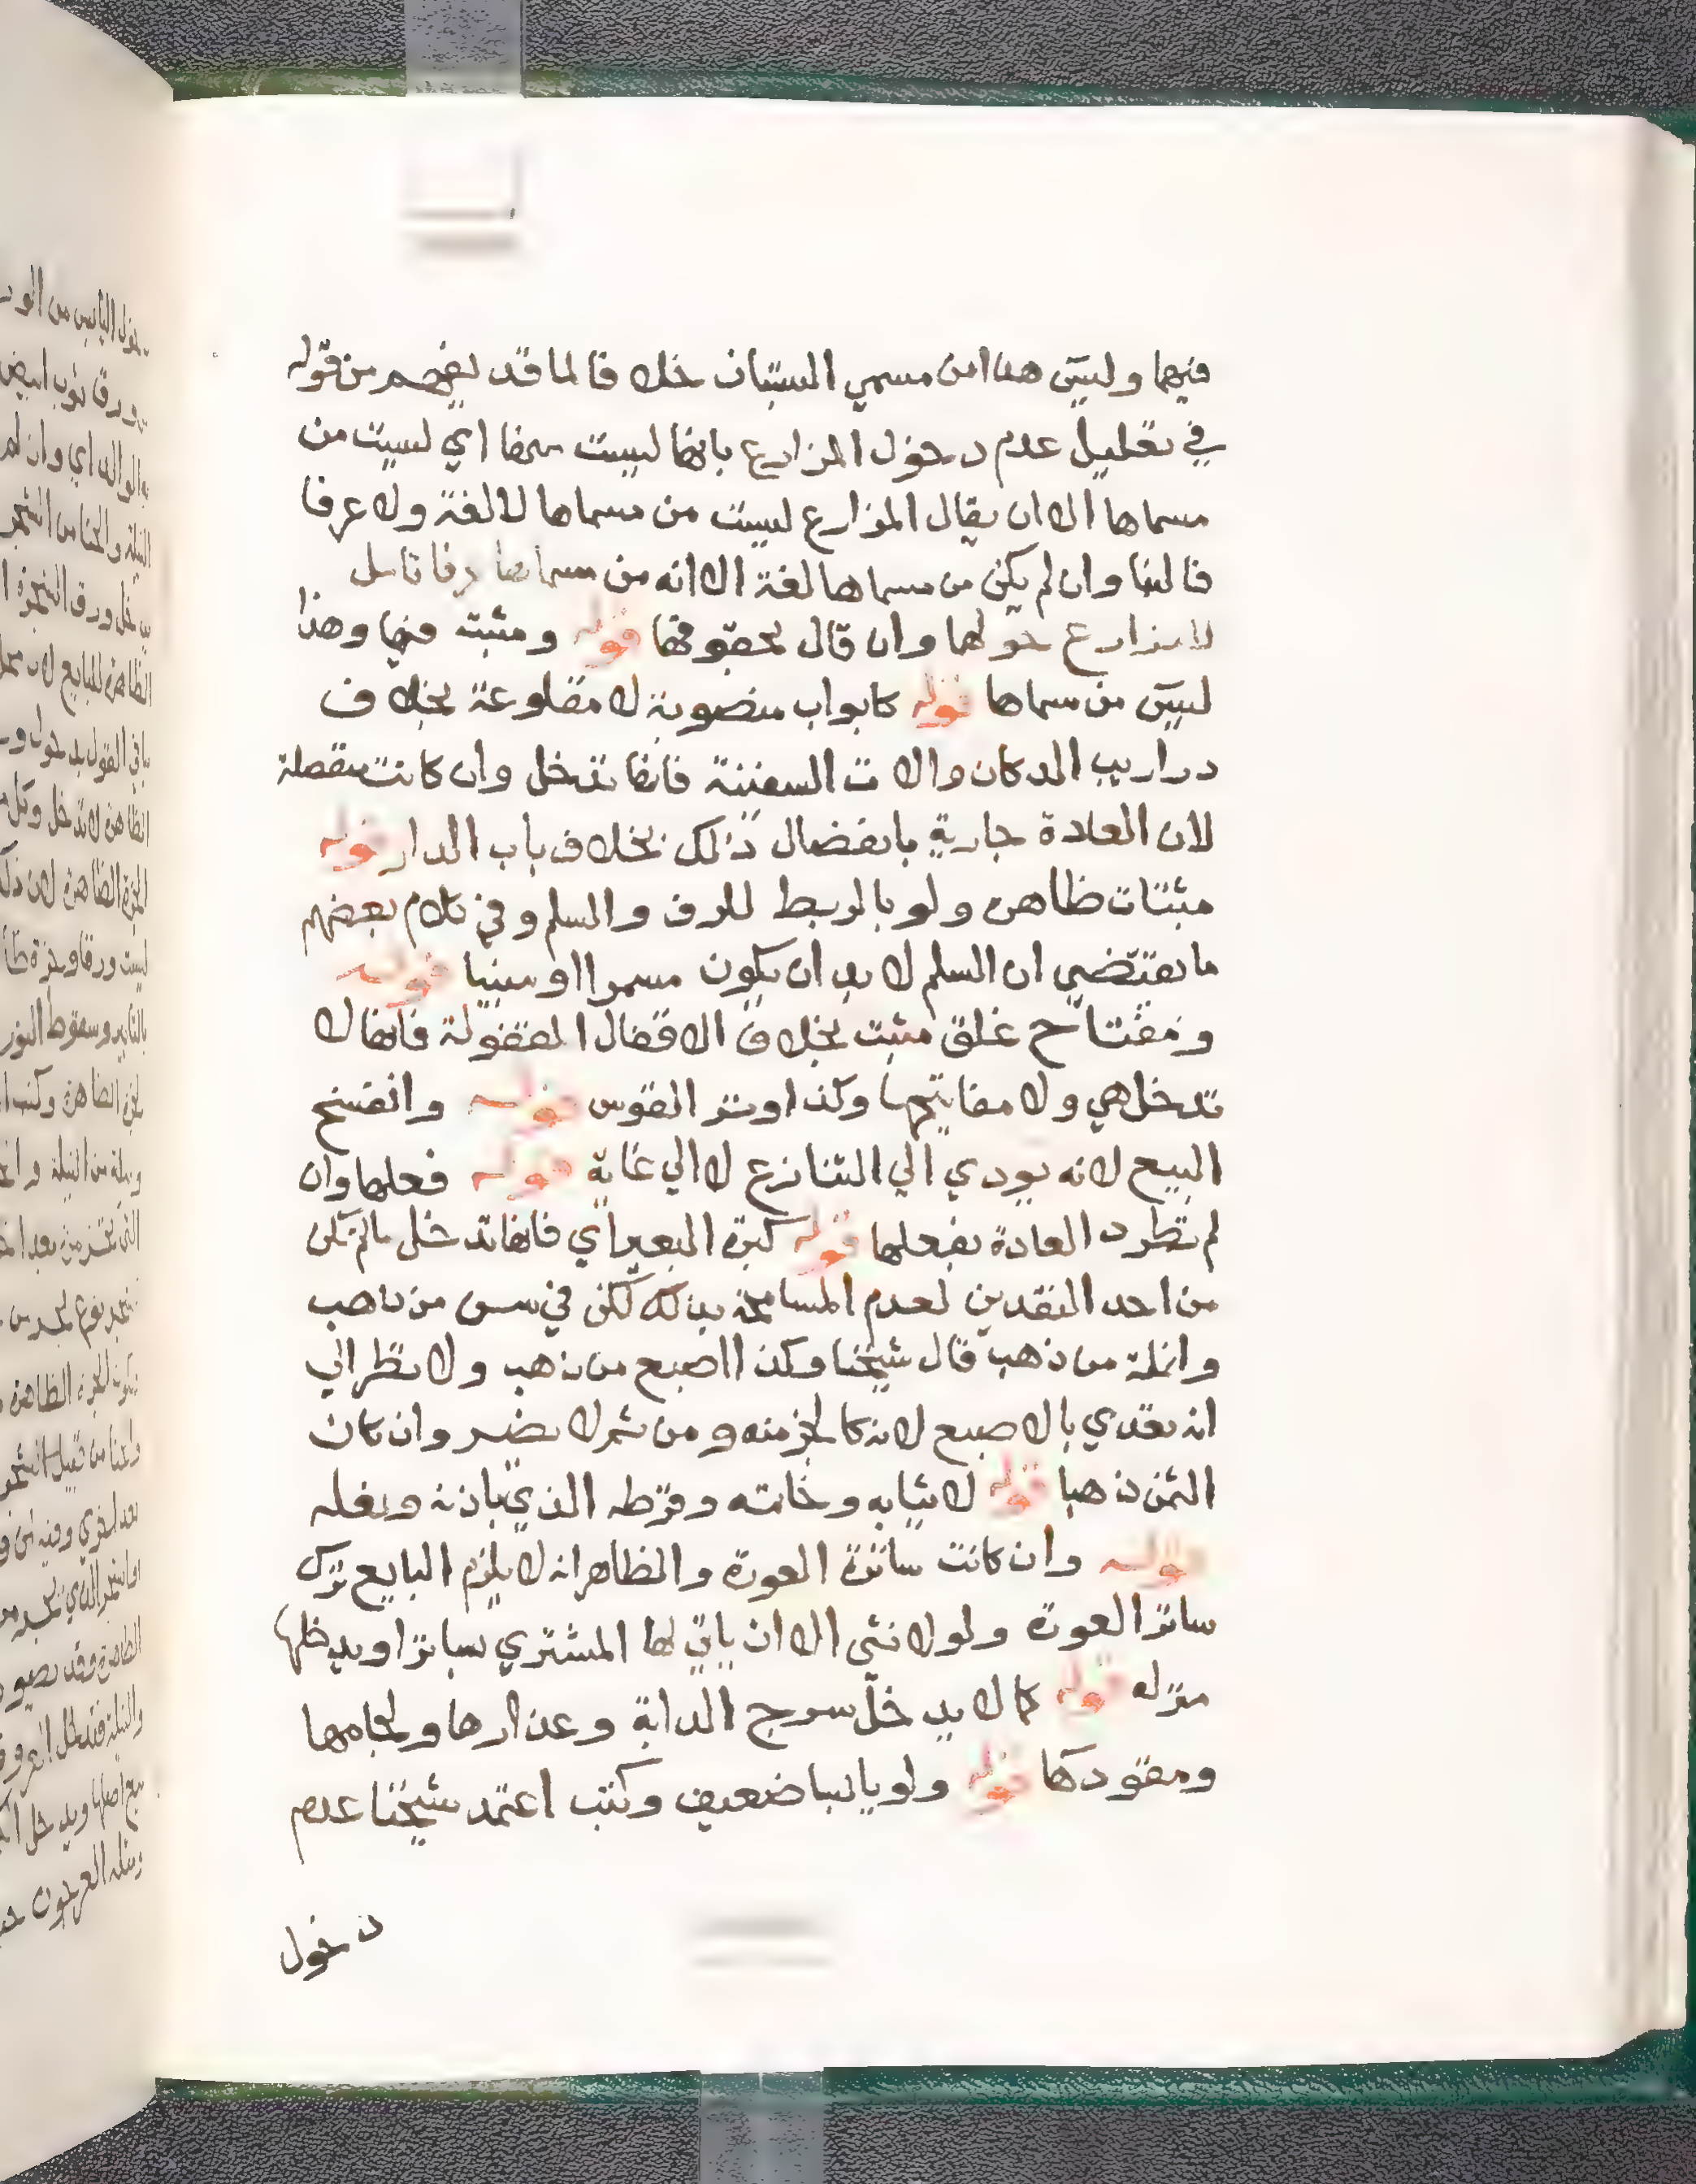 فيها وليس هذا من مسمي البستان خلافا لما قد يفهم من قوله
في تعليل عدم دخول المزارع بانها ليست منها اي ليست من
مسماها الا ان يقال المزارع ليست من مسماها لا لغة ولا عرفا
فالبنا وان لم يكن من مسماها لغة الا انه من مسماها عرفا تامل
لا مزارع حولها وان قال بحقوقها قوله ومثبته فيها وهذا
ليس من مسماها قوله كابواب منصوبة لا مقلوعة بخلاف
دراريب الدكان والات السفينة فانها تدخل وان كانت منفصلة
لان العادة جارية بانفصال ذلك بخلاف باب الدار قوله
مثبتات ظاهره ولو بالربط للرف والسلم وفي كلام بعضهم
ما يقتضي ان السلم لا بد ان يكون مسمرا او مبنيا قوله
ومفتاح غلق مثبت بخلاف الاقفال المقفولة فانها لا
تدخل هي ولا مفاتيحها وكذا وتر القوس قوله وانفسخ
البيع لانه يودي الي التنازع لا الي غاية قوله فعلها وان
لم تطرد العادة بفعلها قوله كبرة البعير اي فانها تدخل ما لم تكن
من احد النقدين لعدم المسامحة بذلك لكن في سن من ذهب
وانملة من ذهب قال شيخنا وكذا اصبع من ذهب ولا نظر الي
انه تعدي بالاصبع لانه كالجزء منه ومن ثم لا يضر وان كان
الثمن ذهبا قوله لا ثيابه وخاتمه وقرطه الذي باذنه ونعله
قوله وان كانت ساترة العورة والظاهر انه لا يلزم البايع ترك
ساتر العورة ولو لانثى الا ان ياتي لها المشتري بساتر او يدخلها
منزله قوله كما لا يدخل سرج الدابة وعذارها ولجامها
ومقودها قوله ولو يابسا ضعيف وكتب اعتمد شيخنا عدم
دخول